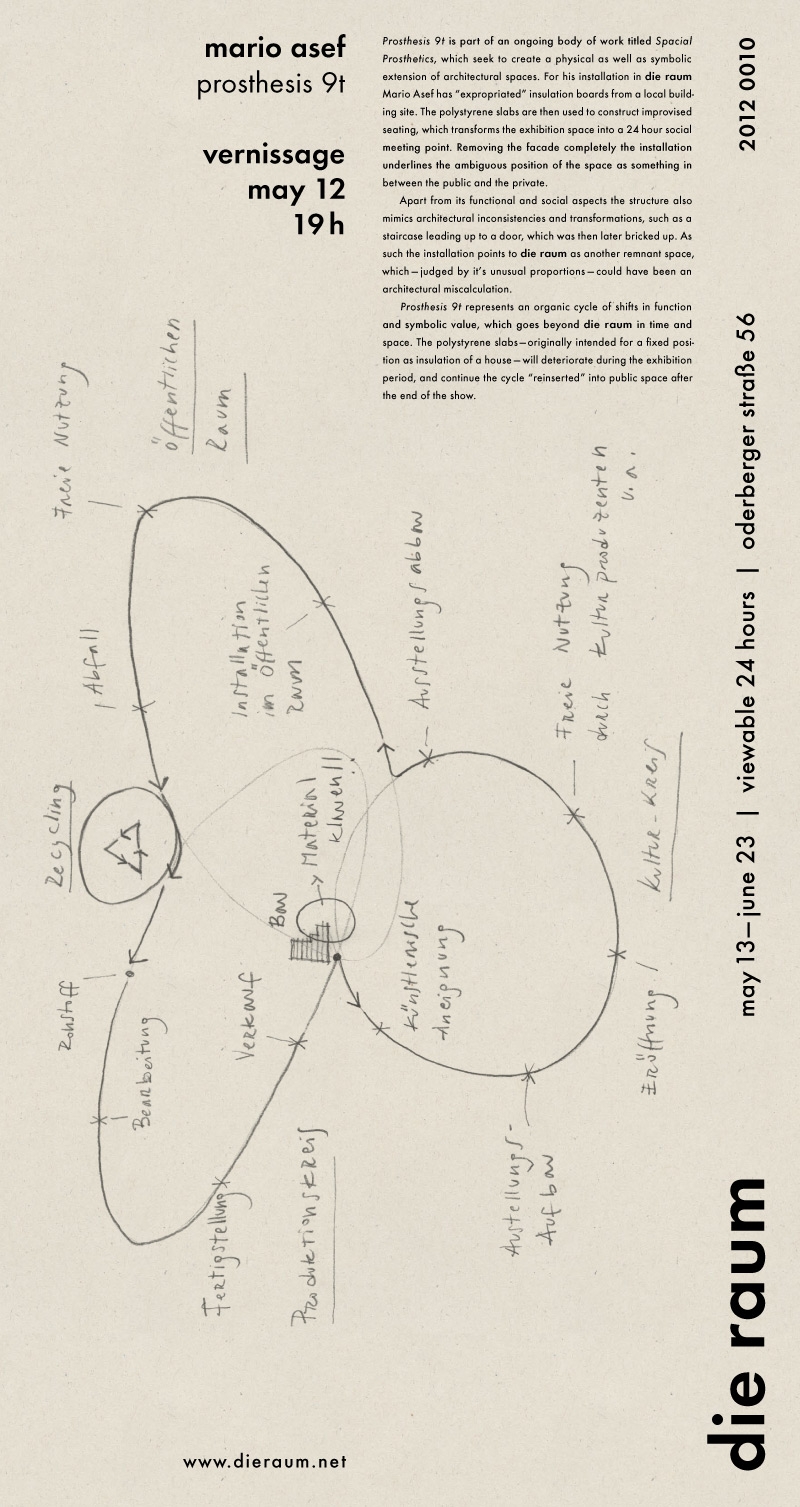 mario asef
prosthesis 9t
vernissage
may 12
19 h
Prosthesis 9t is part of an ongoing body of work titled Spacial
Prosthetics, which seek to create a physical as well as symbolic
extension of architectural spaces. For his installation in die raum
Mario Asef has “expropriated” insulation boards from a local build-
ing site. The polystyrene slabs are then used to construct improvised
seating, which transforms the exhibition space into a 24 hour social
meeting point. Removing the facade completely the installation
underlines the ambiguous position of the space as something in
between the public and the private.
Apart from its functional and social aspects the structure also
mimics architectural inconsistencies and transformations, such as a
staircase leading up to a door, which was then later bricked up. As
such the installation points to die raum as another remnant space,
which—judged by it’s unusual proportions—could have been an
architectural miscalculation.
Prosthesis 9t represents an organic cycle of shifts in function
and symbolic value, which goes beyond die raum in time and
space. The polystyrene slabs—originally intended for a fixed posi-
tion as insulation of a house—will deteriorate during the exhibition
period, and continue the cycle “reinserted” into public space after
the end of the show.
2012 0010
may 13—june 23 | viewable 24 hours | oderberger straße 56
die raum
Freie Nutzung
Öffentlichen
Raum
Abfall
Installation
im Öffentlichen
Raum
Ausstellungsabbau
Freie Nutzung
durch Kulturproduzenten
u.a.
Kultur-Kreis
Recycling
Bau
Material
klauen!!
Künstlerische
Aneignung
Rohstoff
Bearbeitung
Verkauf
Eröffnung
Fertigstellung
Produktionskreis
Austellungs-
Aufbau
www.dieraum.net